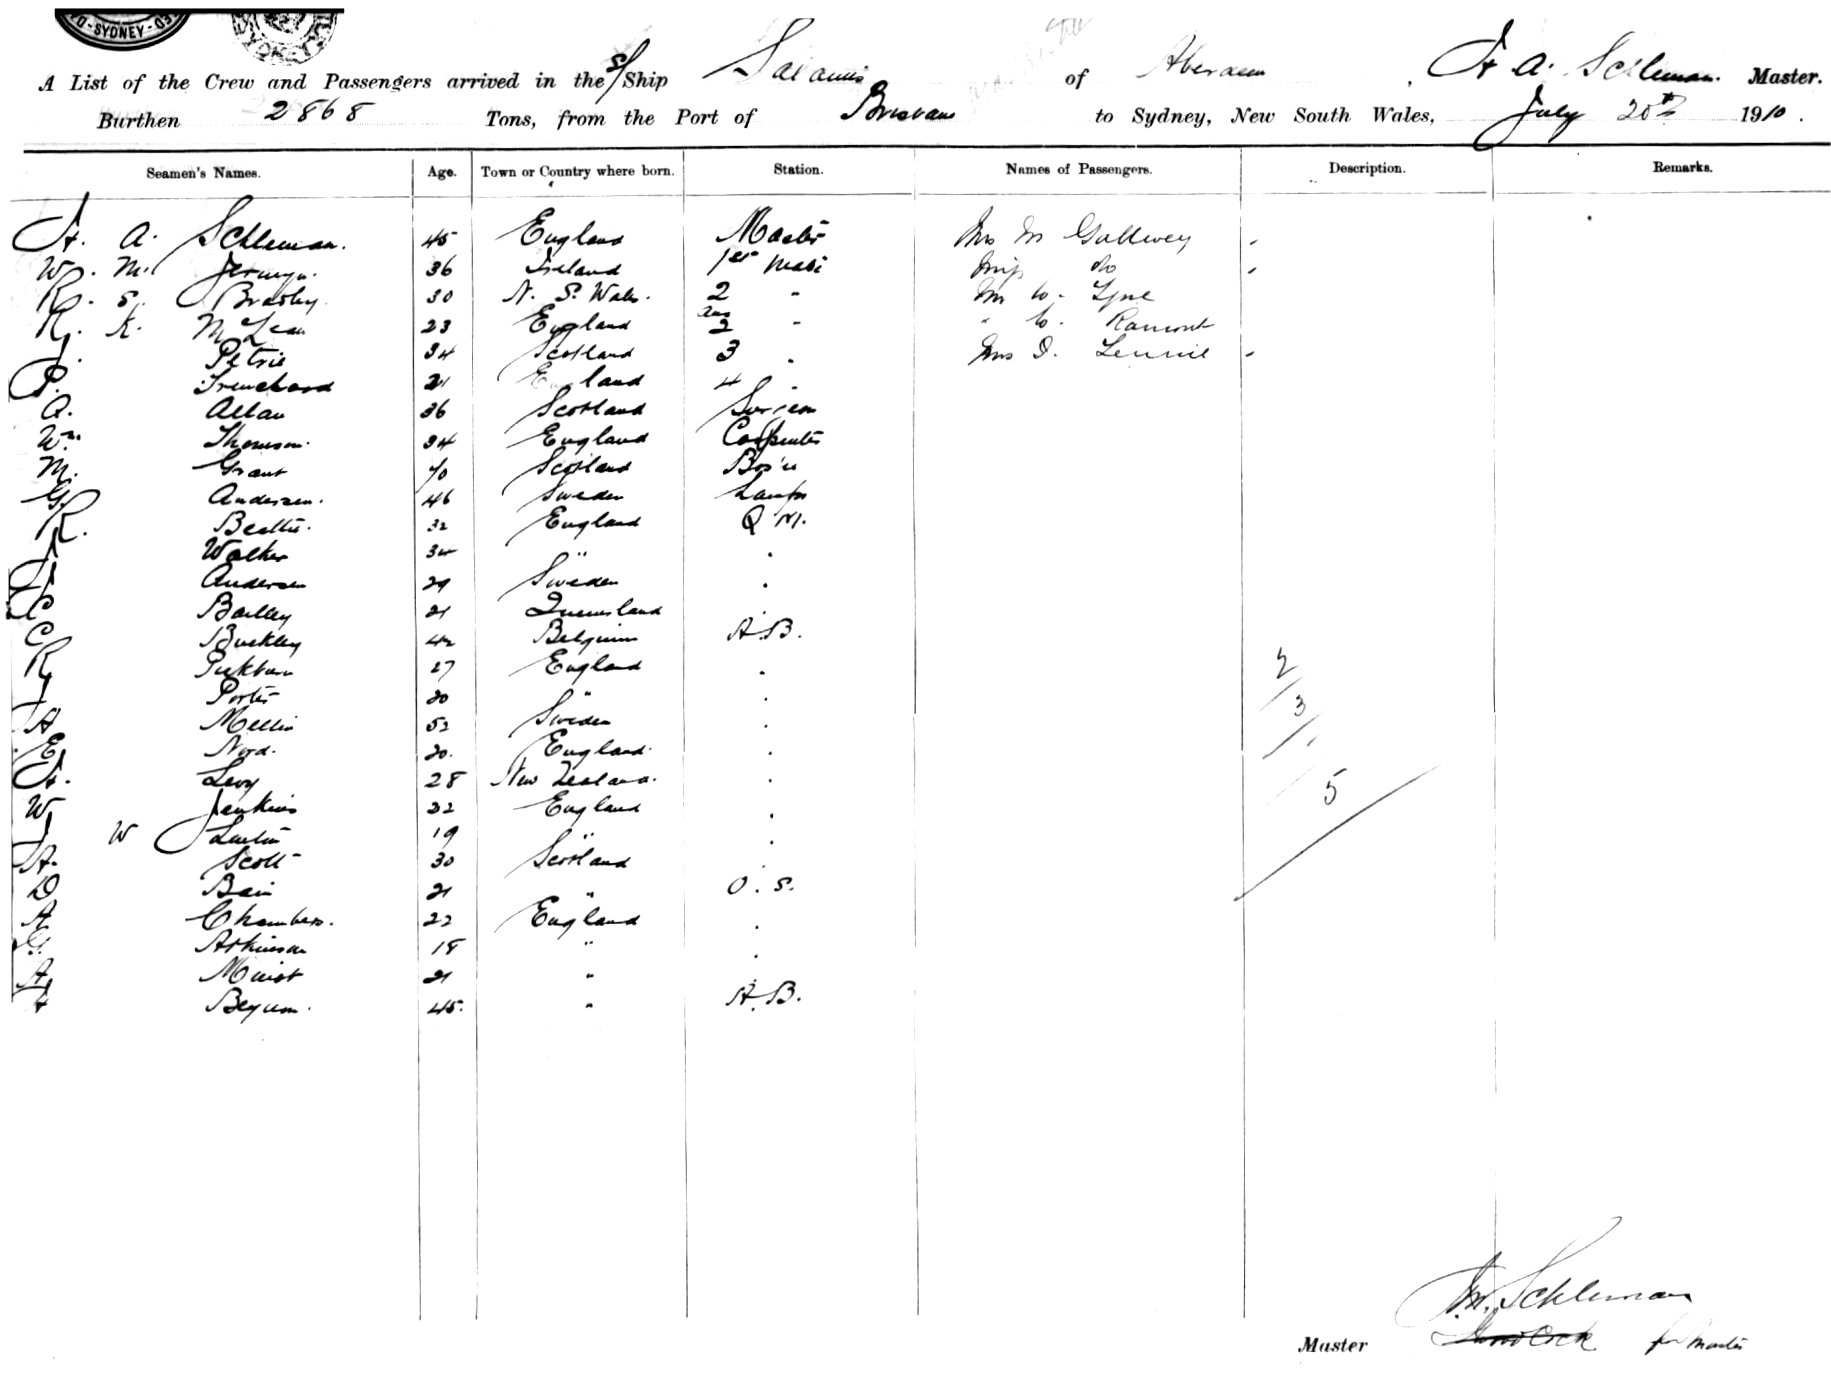 SYDNEY
A List of the Crew and Passengers arrived in the S/Ship Salamis of Aberdeen, H A. Schleman. Master.
Burthen 2868 Tons, from the Port of Brisbane to Sydney, New South Wales, July 20th 1910.
Seamen's Names. Age. Town or Country where born. Station. Names of Passengers. Description. Remarks.
H. A. Schleman. 45 England Master Mrs M Gallwey
W. M. Jermyn. 36 Ireland 1st Mate Miss do
R. S. Bradley. 30 N. S. Wales. 2 " Mr W. Lyne
R. K. McLean 23 England 2 " " Ramont
J Petrie 34 Scotland 3 " Mrs D. Lennie
P. Trenchard 21 England 4 "
A. Allan 36 Scotland Surgeon
Wm. Thomson. 34 England Carpenter
M. Grant 40 Scotland Bos'n
G. Andersen. 46 Sweden Lamps
R. Beattie. 32 England Q M.
J Walker 34 "
Andersen 29 Sweden
C Bailey 21 Queensland
C Buckley 42 Belgium A.B.
R 27 England
J Porter 20 "
A Mellin 52 Sweden
E Nod. 20. England.
H. Levy 28 New Zealand.
W Jenkins 22 England
J W 19 "
A. Scott 30 Scotland
D Bain 21 " O. S.
A Chambers. 22 England
G. Atkinson 18 "
A 21 "
45. " A.B.
2
3
5
Schleman
Master for Master